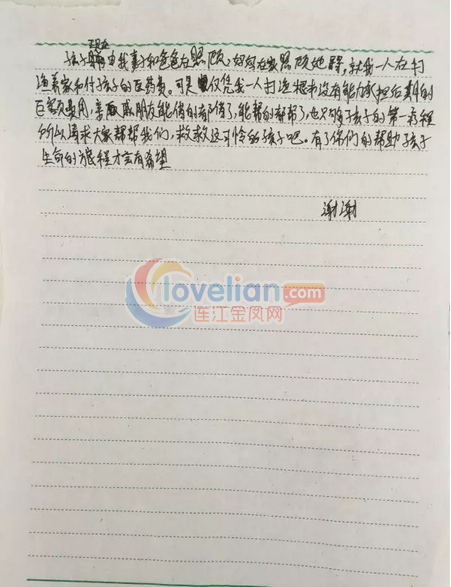 现在
孩子由我妻子和爸爸在照顾,妈妈在家照顾地球,就我一人在打
造养家和付孩子的医药费。可是仅凭我一人打造根本没有能力承担后期的
巨额费用,亲戚朋友能借的都借了,能帮的都帮了,也只够孩子的第一疗程
所以请求大家帮帮我们,救救这可怜的孩子吧。有了你们的帮助孩子
生命的旅程才会有希望
谢谢
lovelian.com
连江金凤网